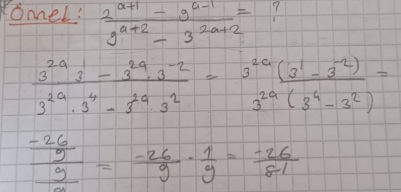 Örnek: (3^(2a+1) - 9^(a-1)) / (9^(a+2) - 3^(2a+2)) = ?
(3^(2a) · 3^1 - 3^(2a) · 3^(-2)) / (3^(2a) · 3^4 - 3^(2a) · 3^2) = 3^(2a) (3^1 - 3^(-2)) / 3^(2a) (3^4 - 3^2) =
(-26/9) / (9/9) = -26/9 · 1/9 = -26/81